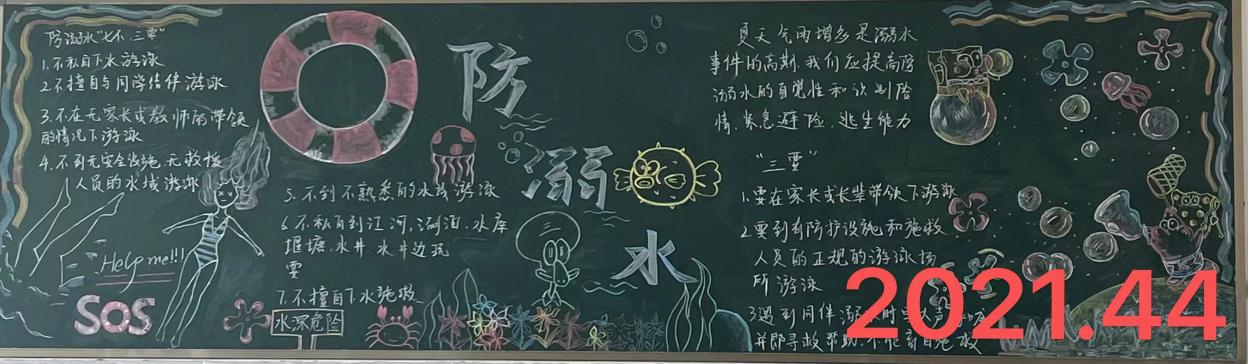 防溺水“七不、三要”
1.不私自下水游泳
2.不擅自与同学结伴游泳
3.不在无家长或教师的带领
的情况下游泳
4.不到无安全设施、无救援
人员的水域游泳
Help me!!!
SOS
防
溺
水
5.不到不熟悉的水域游泳
6.不私自到江、河、湖泊、水库
堰塘、水井、水井边玩
耍
7.不擅自下水施救
水深危险
夏天气雨增多是溺水
事件的高期,我们应提高防
溺水的自觉性和识别险
情、紧急避险、逃生能力
“三要”
1.要在家长或长辈带领下游泳
2.要到有防护设施和施救
人员的正规的游泳场
所游泳
3.遇到同伴溺水时
并即寻救帮助,不能盲目施救
2021.44